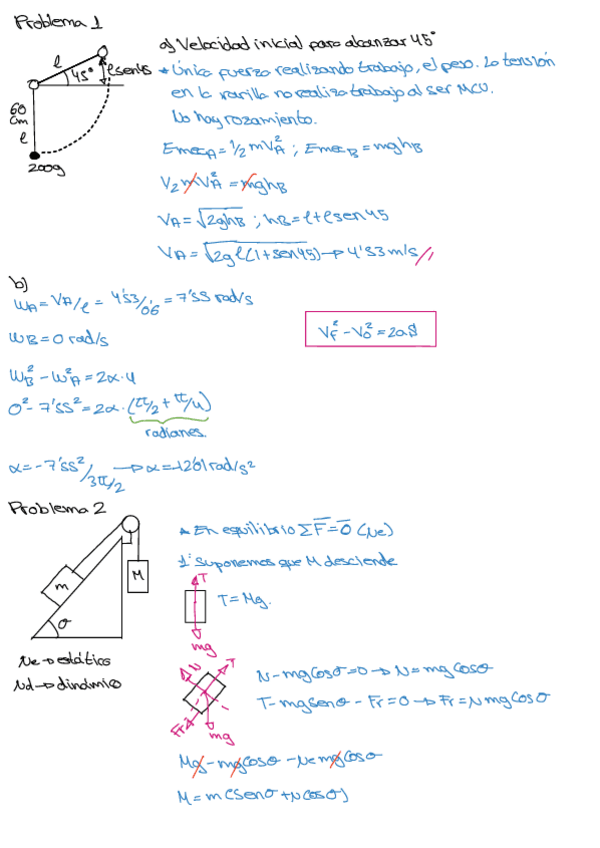 Problema 1
a) Velocidad inicial para alcanzar 45°
l
45°
lsen45
* Única fuerza realizando trabajo, el peso. La tensión
en la varilla no realiza trabajo al ser MCU.
No hay rozamiento.
60
cm
l
200g
EmecA = 1/2 mVA²; EmecB = mghB
1/2 mVA² = mghB
VA = √2ghB ; hB = l + lsen45
VA = √2gl(1+sen45) → 4'53 m/s //
b)
ωA = VA/l = 4'53/0'6 = 7'55 rad/s
ωB = 0 rad/s
VF² - V0² = 2a·S
ωB² - ωA² = 2α·φ
0² - 7'55² = 2α·(π/2 + π/4)
radianes.
α = -7'55²/3π/2 → α = -12'01 rad/s²
Problema 2
* En equilibrio ΣF̅ = 0̅ (Ne)
1º Suponemos que M desciende
m
M
σ
T
T = Mg.
mg
Ne → estático
Nd → dinámico
N
T
Fr
mg
N - mgcosσ = 0 → N = mgcosσ
T - mgsenσ - Fr = 0 → Fr = Nmgcosσ
Mg - mgcosσ - Ne mgcosσ
M = m(senσ + Ncosσ)